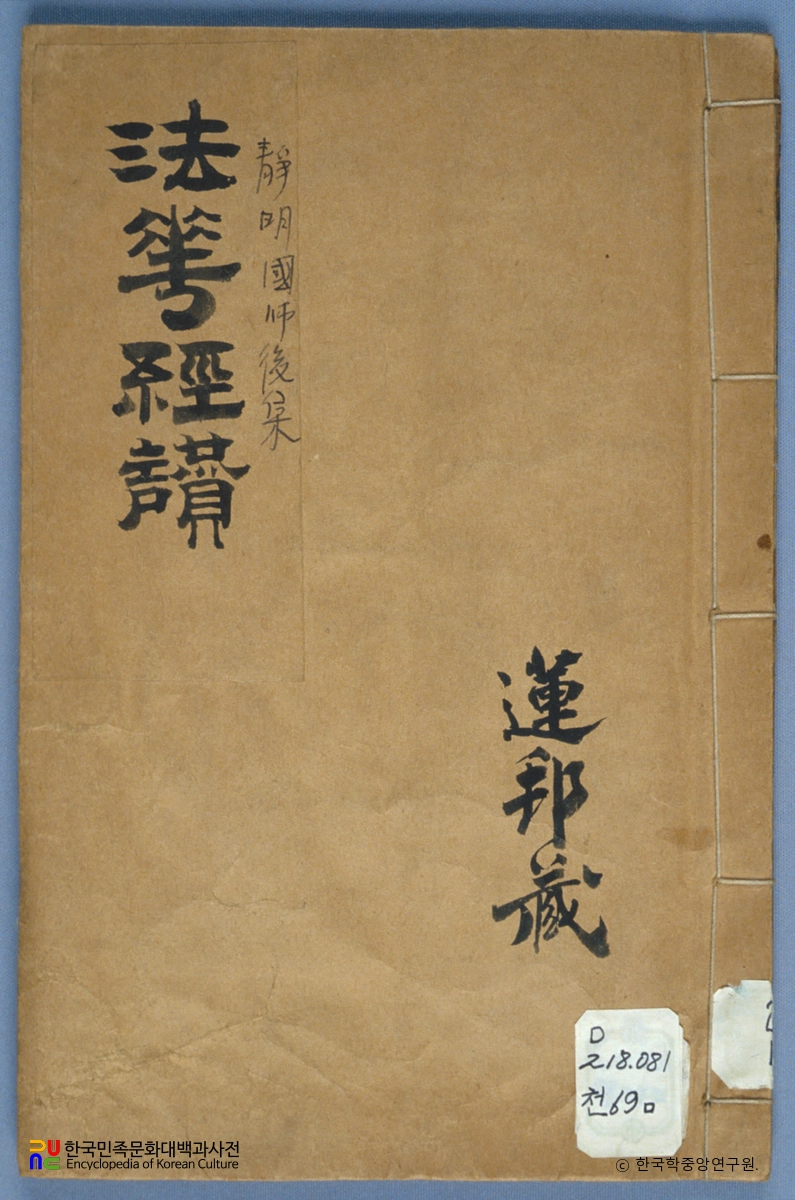 法華經讚
靜明國师後集
蓮邦藏
D
218.081
천69ㅁ
한국민족문화대백과사전
Encyclopedia of Korean Culture
ⓒ 한국학중앙연구원.